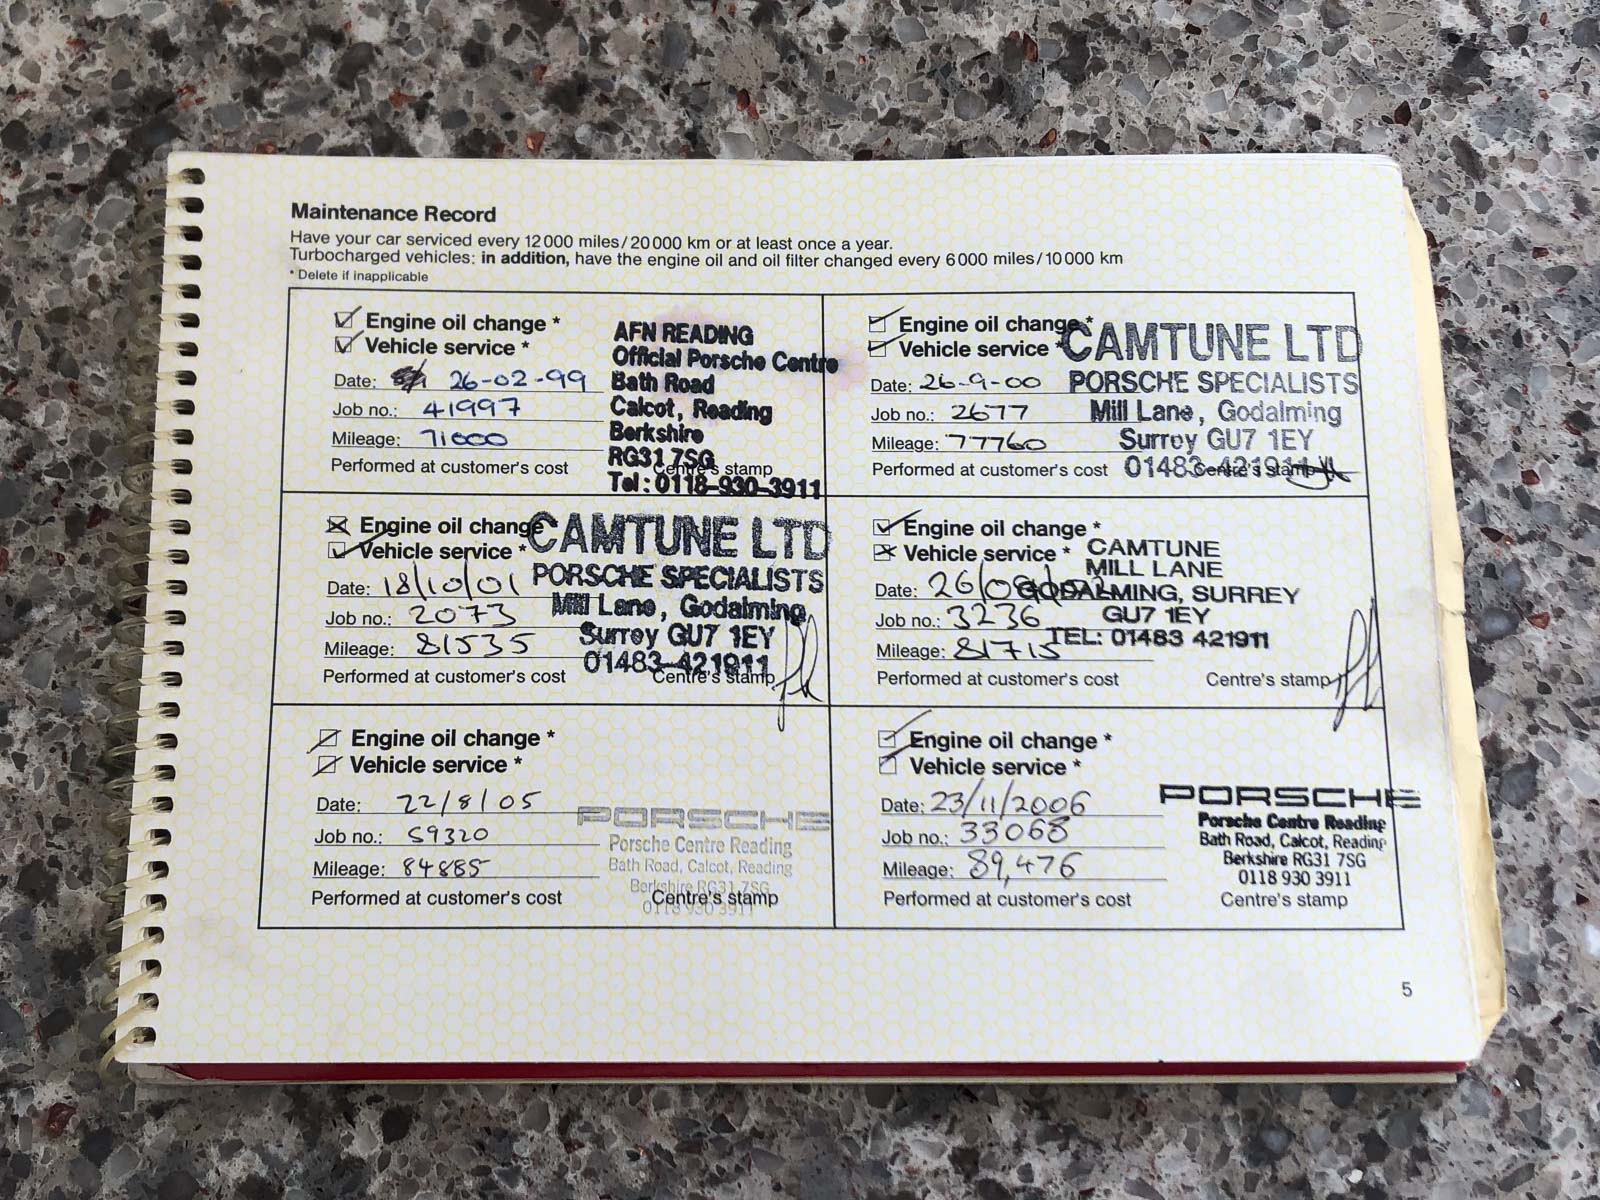 Maintenance Record
Have your car serviced every 12 000 miles/20 000 km or at least once a year.
Turbocharged vehicles: in addition, have the engine oil and oil filter changed every 6 000 miles/10 000 km
* Delete if inapplicable
Engine oil change *
Vehicle service *
Date: 26-02-99
Job no.: 41997
Mileage: 71000
Performed at customer's cost
AFN READING
Official Porsche Centre
Bath Road
Calcot, Reading
Berkshire
RG31 7SG
Centre's stamp
Tel: 0118-930-3911
Engine oil change *
Vehicle service *
Date: 26-9-00
Job no.: 2677
Mileage: 77760
Performed at customer's cost
CAMTUNE LTD
PORSCHE SPECIALISTS
Mill Lane, Godalming
Surrey GU7 1EY
01483-421911
Centre's stamp
Engine oil change
Vehicle service *
Date: 18/10/01
Job no.: 2073
Mileage: 81535
Performed at customer's cost
CAMTUNE LTD
PORSCHE SPECIALISTS
Mill Lane, Godalming
Surrey GU7 1EY
01483-421911
Centre's stamp
Engine oil change *
Vehicle service *
Date:
Job no.: 3236
Mileage: 81715
Performed at customer's cost
CAMTUNE
MILL LANE
GODALMING, SURREY
GU7 1EY
TEL: 01483 421911
Centre's stamp
Engine oil change *
Vehicle service *
Date: 22/8/05
Job no.: 59320
Mileage: 84885
Performed at customer's cost
PORSCHE
Porsche Centre Reading
Bath Road, Calcot, Reading
Berkshire RG31 7SG
0118 930 3911
Centre's stamp
Engine oil change *
Vehicle service *
Date: 23/11/2006
Job no.: 33068
Mileage: 89,476
Performed at customer's cost
PORSCHE
Porsche Centre Reading
Bath Road, Calcot, Reading
Berkshire RG31 7SG
0118 930 3911
Centre's stamp
5